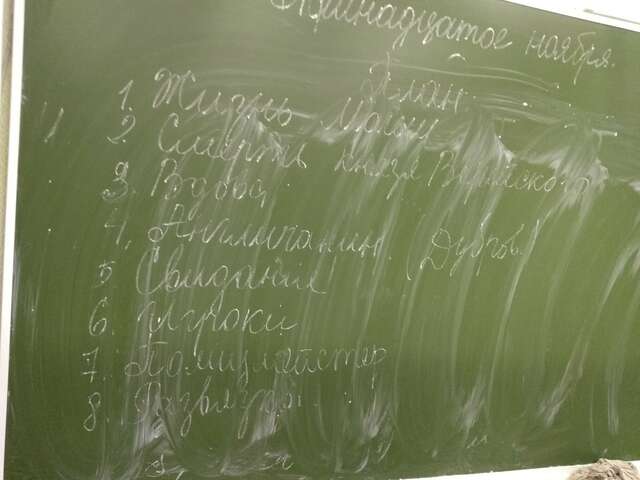 Тринадцатое ноября.
План
1. Жизнь Маши
2. Смерть князя Верейского
3. Вдова.
4. Англичанин. (Дубров.)
5 Свидание
6. Игроки
7. Полицмейстер
8. Развязка